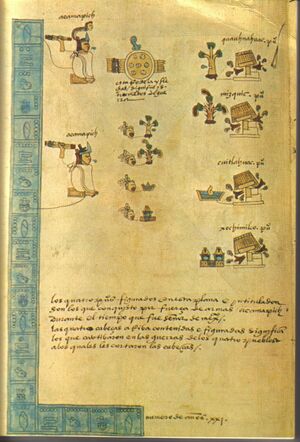 acamapich
quauhnahuac. puº
trumentos de gue
rra
mizquic. puº
acamapich
cuitlahuac. puº
xochimilco. puº
los quatro puºs figurados en esta plana e yntitulados
son los que conquisto por fuerça de armas acamapich
durante el tiempo que fue señor de
las quatro cabeças arriba contenidas e figuradas significa
los que cautibaron en las guerras de los quatro pueblos
a los quales les cortaron las cabeças
numero de años. xxi.